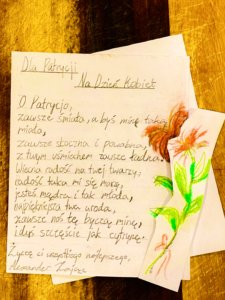 Dla Patrycji
Na Dzień Kobiet
O Patrycjo,
zawsze śmiała, a byś minę taką
miała,
zawsze skoczna i powabna,
z twym uśmiechem zawsze ładna.
Wieczna radość na twej twarzy,
radość taka mi się marzy,
jesteś mądra i tak młoda,
najpiękniejsza twa uroda,
zawsze noś tę byczą minę,
i duś szczęście jak cytrynę.
Życzę ci wszystkiego najlepszego,